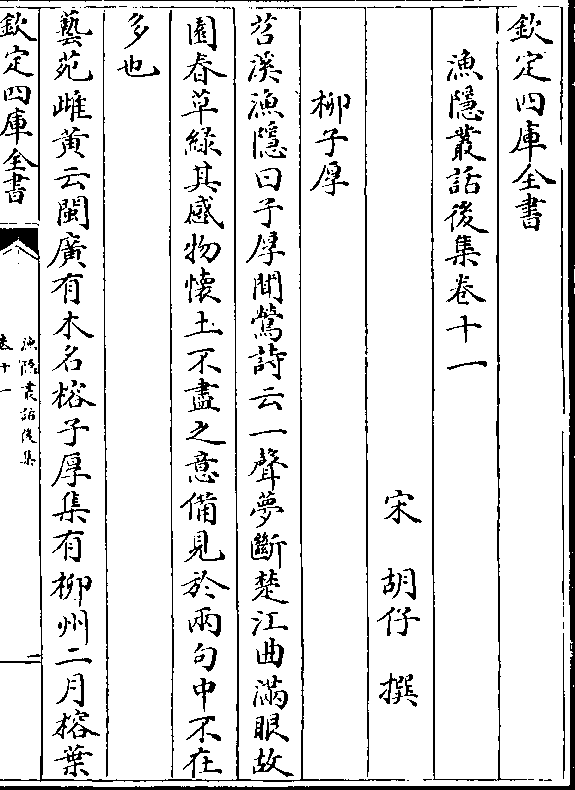 欽定四庫全書
漁隱叢話後集卷十一
宋 胡仔 撰
柳子厚
苕溪漁隱曰子厚聞鶯詩云一聲夢斷楚江曲滿眼故
園春草綠其感物懷土不盡之意備見於兩句中不在
多也
藝苑雌黃云閩廣有木名榕子厚集有柳州二月榕葉
欽定四庫全書
漁隱叢話後集
卷十一